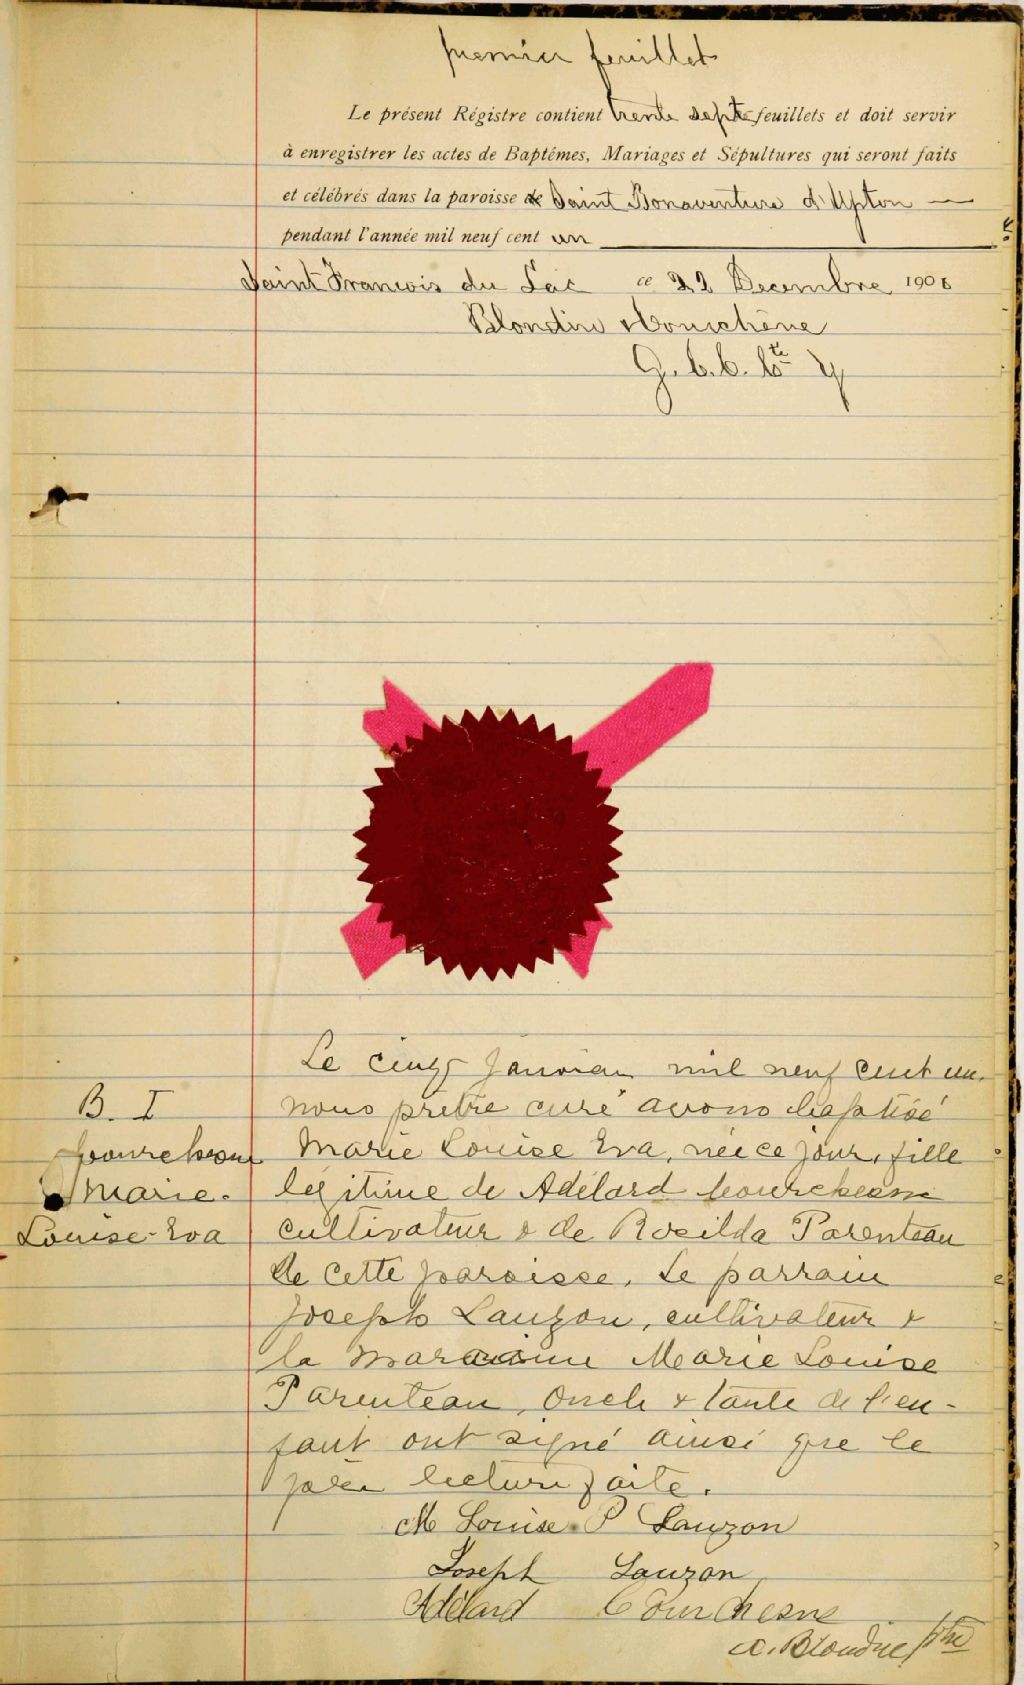 premier feuillet
Le présent Régistre contient trente sept feuillets et doit servir
à enregistrer les actes de Baptêmes, Mariages et Sépultures qui seront faits
et célébrés dans la paroisse de Saint Bonaventure d'Upton —
pendant l'année mil neuf cent un
Saint Francois du Lac ce 22 Decembre 1900
Blondin &
G. C. C.
Le cinq Janvier mil neuf cent un,
nous prêtre curé avons baptisé
Marie Louise Eva, née ce jour, fille
légitime de Adélard Courchesne
cultivateur & de Rosilda Parenteau
de cette paroisse. Le parrain
Joseph Lauzon, cultivateur &
la marraine Marie Louise
Parenteau, oncle & tante de l'en-
fant ont signé ainsi que le
père lecture faite.
B. I
Courchesne
Marie-
Louise-Eva
M Louise P Lauzon
Joseph Lauzon
Adélard Courchesne
A. Blondin, ptre